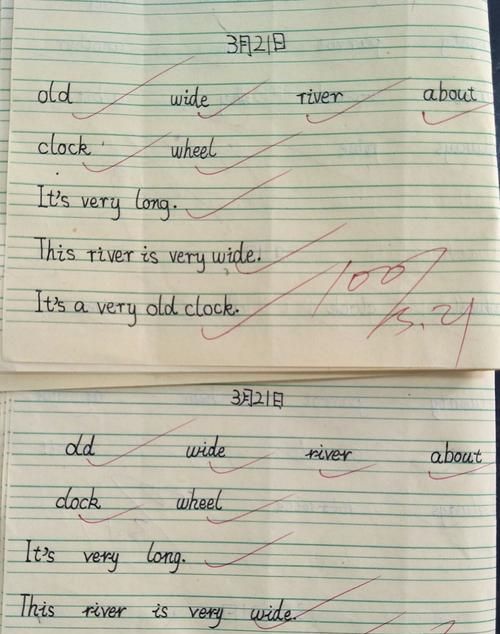 3月21日
old wide river about
clock wheel
It's very long.
This river is very wide.
It's a very old clock.
100
3.21
3月21日
old wide river about
clock wheel
It's very long.
This river is very wide.